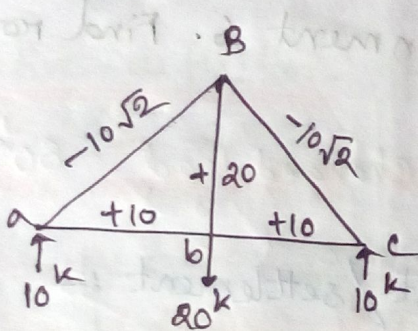 B
-10√2
-10√2
+20
a
+10
+10
b
C
10ᵏ
20ᵏ
10ᵏ